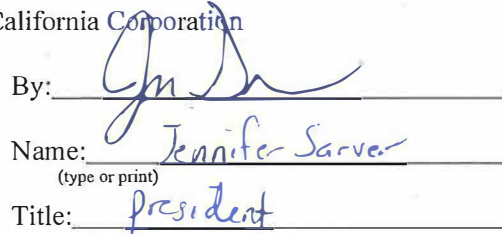 California Corporation
By:
Name: Jennifer Sarver
(type or print)
Title: president